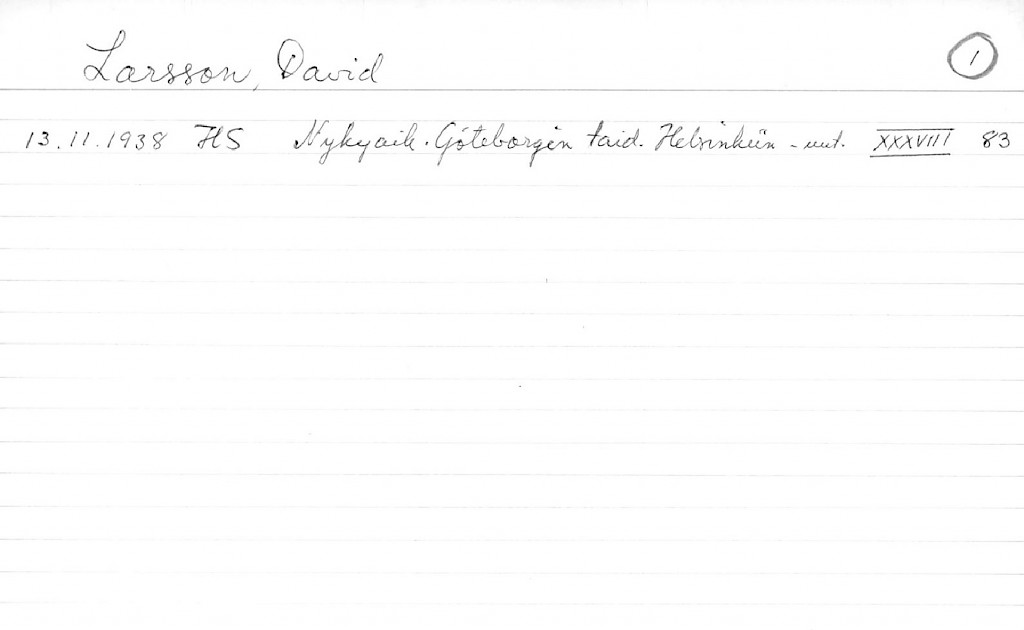 Larsson, David 1
13.11.1938 HS Nykyaik. Göteborgin taid. Helsinkiin - uut. XXXVIII 83